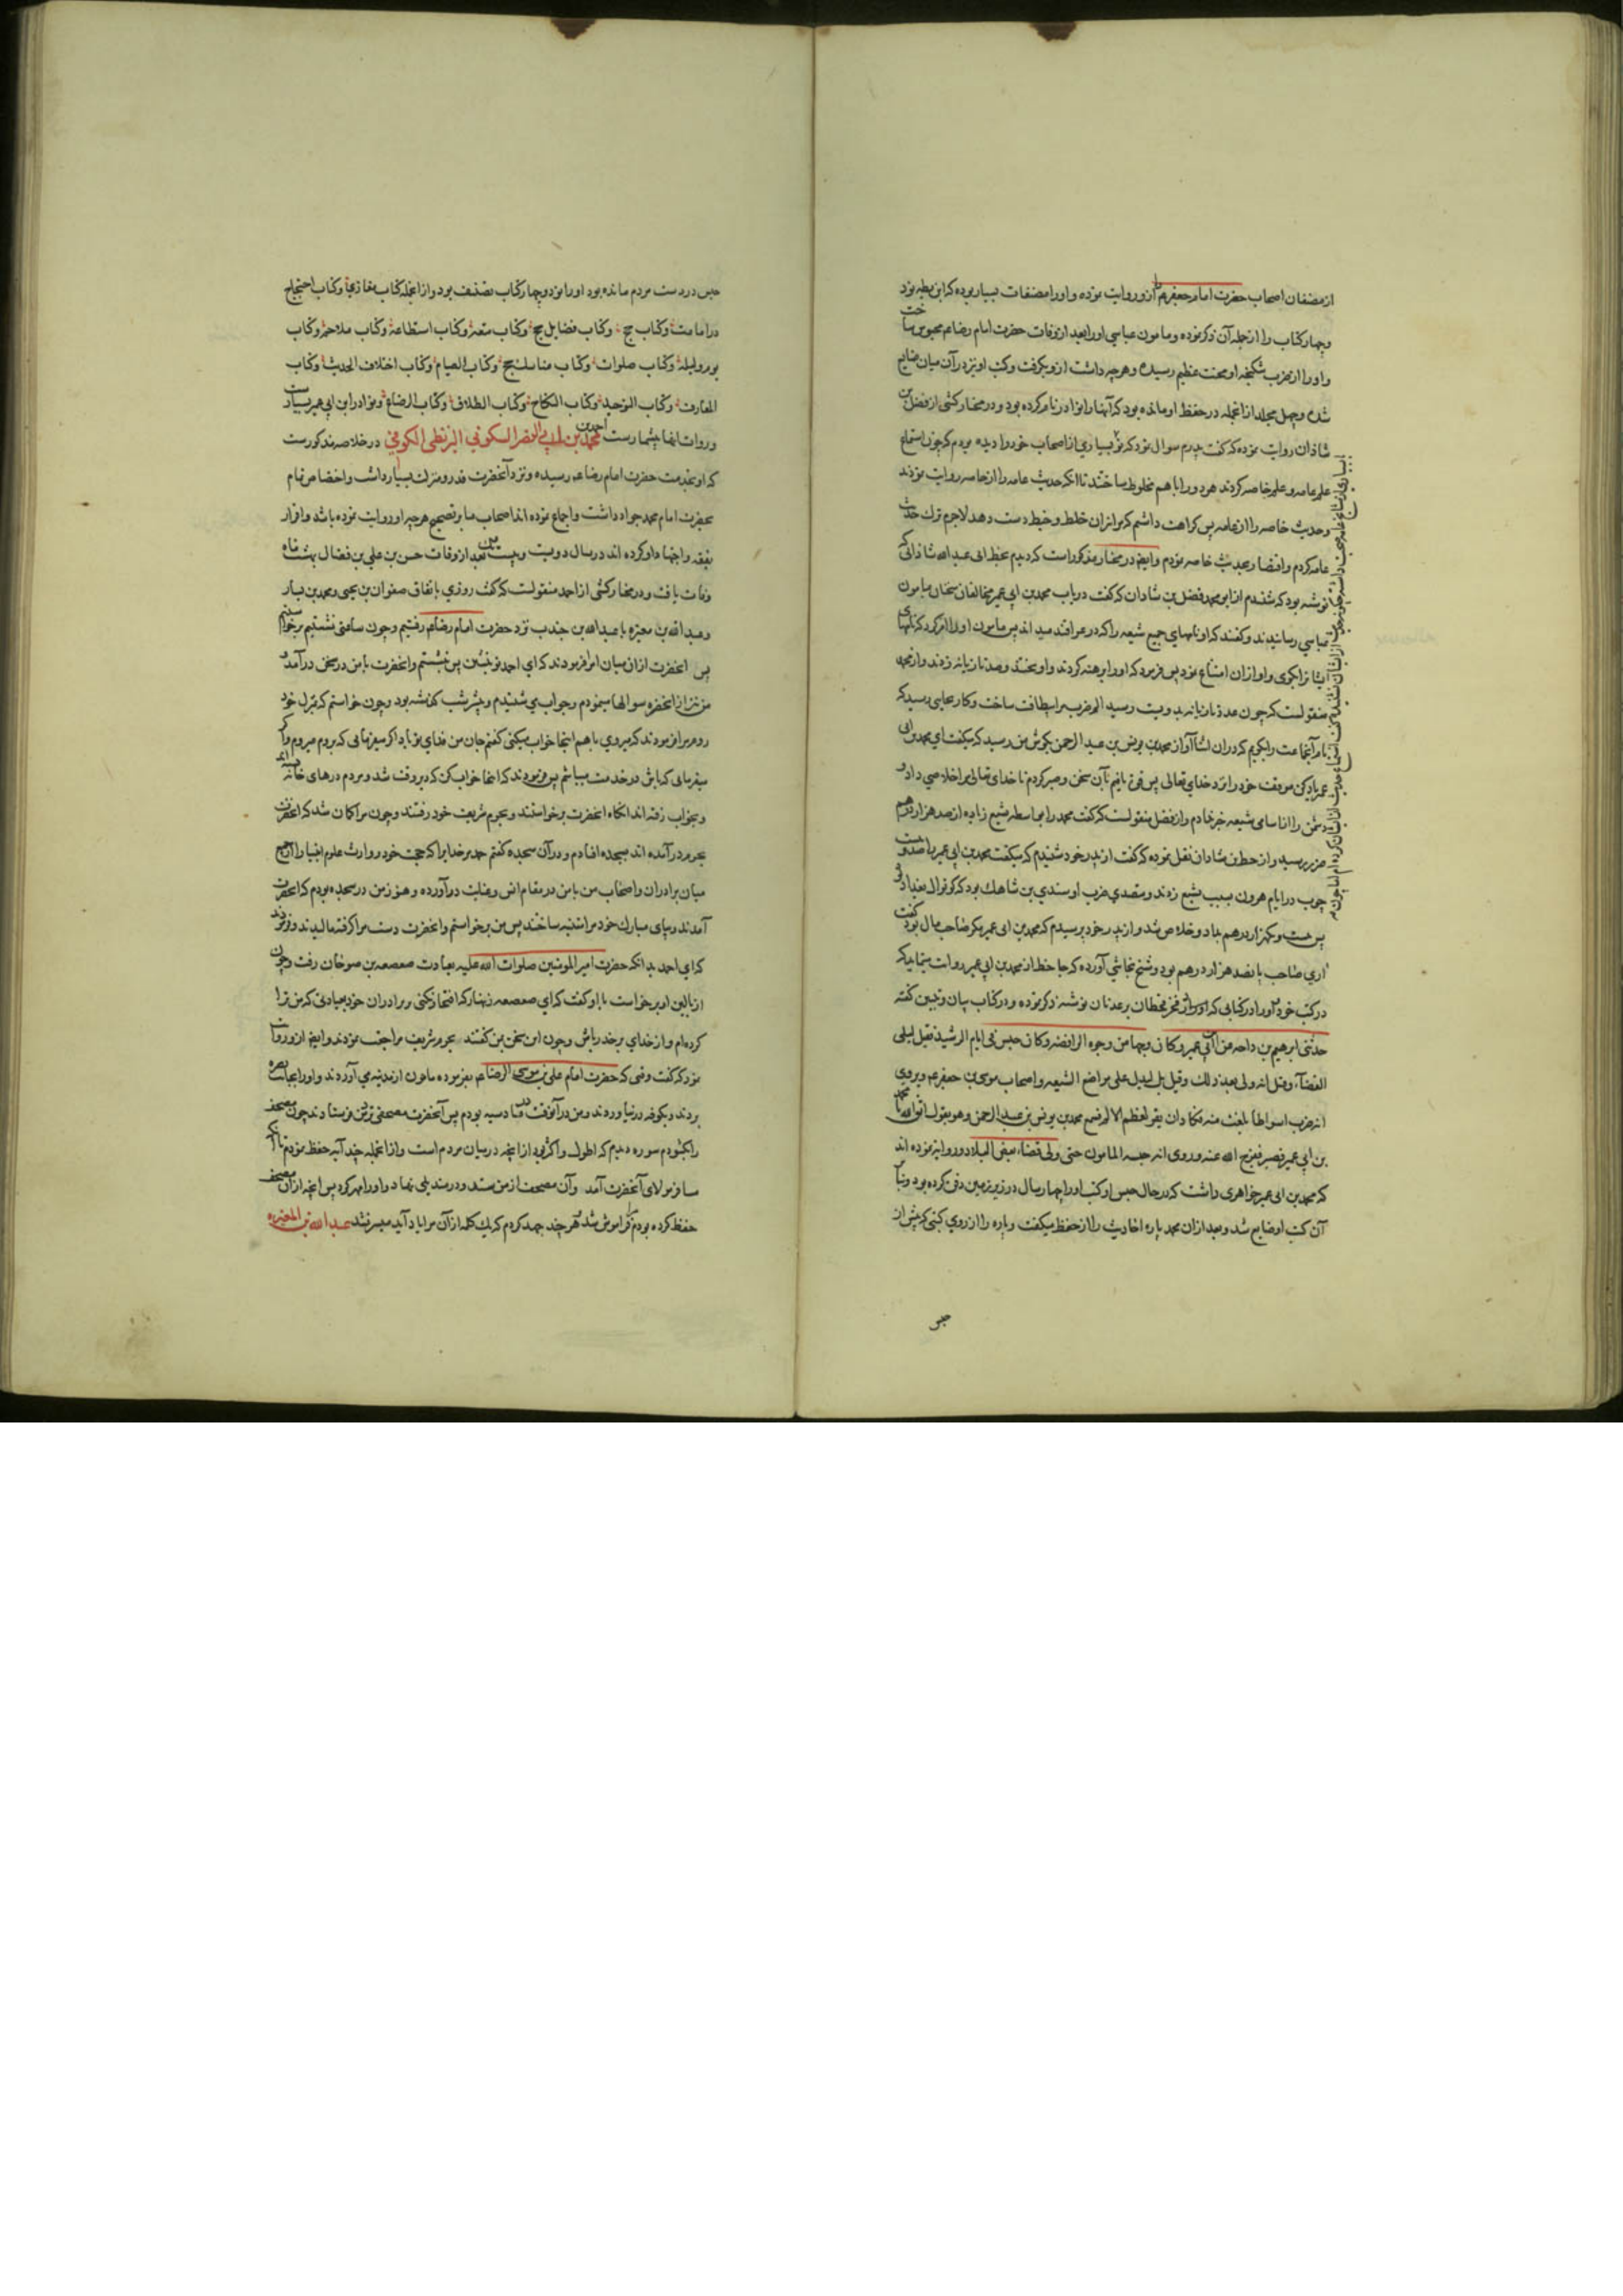 از مصنفان اصحاب حضرت امام جعفرند از و روایت نموده و او را مصنفات بسیار بوده که ابن بطه نود
وچهار کتاب را از جمله آن ذکر نموده و مامون عباسی او را بعد از وفات حضرت امام رضا عم محبوس ساخت
و او را از ضرب شکنجه او محنت عظیم رسیده و هرچه داشت ازو بگرفت وکتب او نیز در آن میان ضایع
شده وچهل مجلد از انجمله در حفظ او مانده بود که آنها را نوادر نام کرده بود و در مختار کشی از فضل بن
شاذان روایت نموده که گفت پدرم سوال نمود که تو بسیاری از اصحاب خود را دیده بودم که چون استماع
علم عامه وعلم خاصه کردند هر دو را با هم مخلوط ساختند تا آنکه حدیث عامه را از خاصه روایت نمودند
وحدیث خاصه را از عامه پس کراهت داشتم که مرا نیز آن خلط وخبط دست دهد لاجرم ترک حدیث
عامه کردم و اقتصار بحدیث خاصه نمودم وایضا در مختار مذکور است که دیدم بخط ابی عبد الله شاذانی که
نوشته بود که شنیدم از ابو محمد فضل بن شاذان که گفت در باب محمد بن ابی عمیر مخالفان سخنان بمامون
عباسی رسانیدند وگفتند که او نامهای جمیع شیعه را که در عراقند میداند پس مامون او را امر کرد که نامهای
ایشانرا بگوی و او از آن امتناع نمود پس فرمود که او را برهنه کردند و او بختند وصد تازیانه زدند و از محمد
منقولست که چون عدد تازیانه به دویست رسید الم ضرب مرا بیطاقت ساخت وکار بجایی رسید که
نام آنجماعت را بگویم که در آن اثنا آواز محمد بن یونس بن عبد الرحمن بگوش من رسید که میگفت ای محمد بن ابی
عمیر یاد کن موقف خود را نزد خدای تعالی پس قوت یافتم بآن سخن وصبر کردم تا خدای تعالی مرا خلاصی داد و
دشمن را از اسامی شیعه خبر ندادم و از فضل منقولست که گفت محمد را بواسطه تشیع زیاده از صد هزار درهم
ضرر رسید و از خط بن شاذان نقل نموده که گفت از پدر خود شنیدم که میگفت محمد بن ابی عمیر را صد وبیست
چوب در ایام هرون بسبب تشیع زدند ومتصدی ضرب او سندی بن شاهک بود که کوتوال بغداد بود
پس صد ویکهزار درهم بداد وخلاص شد و از پدر خود پرسیدم که محمد بن ابی عمیر مگر صاحب مال بود گفت
آری صاحب پانصد هزار درهم بود وشیخ نجاشی آورده که جاحظ از محمد بن ابی عمیر روایت مینماید که
در کتب خود او را در کتابی که او در از فخر قحطان بر عدنان نوشته ذکر نموده و در کتاب بیان وتبیین گفته
حدثنی ابرهیم بن داحه عن ابن ابی عمیر وکان وجها من وجوه الرافضة وکان حبس فی ایام الرشید فقیل لیلی
القضآء وقیل انه ولی بعد ذلک وقیل بل لیدل علی مواضع الشیعه واصحاب موسی بن جعفر عم ویروی
انه ضرب اسواطا بلغت منه فکاد ان یقر لعظم الالم فسمع محمد بن یونس بن عبد الرحمن وهو یقول اتق الله یا محمد
بن ابی عمیر فصبر ففرج الله عنه وروی انه حبسه المامون حتی ولی قضاء بعض البلاد و روایه نموده اند
که محمد بن ابی عمیر خواهری داشت که در حال حبس او کتب او را چهار سال در زیر زمین دفن کرده بود وبنآ
آن کتب او ضایع شد وبعد از آن محمد پاره احادیث را از حفظ میگفت وپاره را از روی کتبی که پیش از
حبس
حبس در دست مردم مانده بود او را نود وچهار کتاب تصنیف بود و از انجمله کتاب مغازی وکتاب احتجاج
در امامت وکتاب حج وکتاب فضایل حج وکتاب متعه وکتاب استطاعه وکتاب ملاحم وکتاب
یوم ولیله وکتاب صلوات وکتاب مناسک حج وکتاب الصیام وکتاب اختلاف الحدیث وکتاب
المعارف وکتاب التوحید وکتاب النکاح وکتاب الطلاق وکتاب الرضاع ونوادر ابن ابی عمیر بسیارست
و روات انها بیشمارست احمد بن محمد بن ابی النصر السکونی البزنطی الکوفی در خلاصه مذکورست
که او بخدمت حضرت امام رضا عم رسیده ونزد آنحضرت قدر ومنزلت بسیار داشت واختصاص تمام
بحضرت امام محمد جواد داشت واجماع نموده اند اصحاب ما بر تصحیح هرچه او روایت نموده باشد واقرار
بفقه واجتهاد او کرده اند در سال دویست وبیست ویک بعد از وفات حسن بن علی بن فضال بهشت ماه
وفات یافت و در مختار کشی از احمد منقولست که گفت روزی باتفاق صفوان بن یحیی ومحمد بن سنان
وعبد الله بن مغیره یا عبد الله بن جندب نزد حضرت امام رضا عم رفتیم وچون ساعتی نشستیم برخواستیم
پس آنحضرت از آن میان مرا فرمودند که ای احمد تو بنشین پس نشستم وآنحضرت با من در سخن درآمد و
من نیز از آنحضرت سوالها مینمودم وجواب می شنیدم وبیشتر شب گذشته بود وچون خواستم که بمنزل خود
روم مرا فرمودند که میروی یا هم اینجا خواب میکنی گفتم جان من فدای تو باد اگر میفرمایی که بروم میروم واگر
میفرمایی که باش در خدمت میباشم پس فرمودند که اینجا خواب کن که دیر وقت شد ومردم درهای خانه بسته اند
وبخواب رفته اند انگاه آنحضرت برخواستند وبحرم شریف خود رفتند وچون مرا گمان شد که آنحضرت
بحرم درآمده اند بسجده افتادم و در آن سجده گفتم حمد مر خدایرا که حجت خود و وارث علوم انبیا را از جمیع
میان برادران واصحاب من با من در مقام انس وعنایت درآورده وهنوز من در سجده بودم که آنحضرت
آمدند وبپای مبارک خود مرا متنبه ساختند پس من برخواستم وآنحضرت دست مرا گرفته مالیدند وفرمودند
که ای احمد بدانکه حضرت امیر المومنین صلوات الله علیه بعیادت صعصعه بن صوحان رفت وچون
از بالین او برخواست با او گفت که ای صعصعه زنهار که افتخار نکنی بر برادران خود بعیادتی که من ترا
کرده ام و از خدای برحذر باش وچون این سخن بمن گفتند بحرم شریف مراجعت نمودند وایضا ازو روایت
نمود که گفت وقتی که حضرت امام علی بن موسی الرضا عم بفرموده مامون از مدینه می آوردند و او را بجانب بصره
بردند وبکوفه در نیاوردند ومن در آنوقت در قادسیه بودم پس آنحضرت مصحفی نزد من فرستادند چون مصحف
را بگشودم سوره دیدم که اطول واکثر بود از آنچه در میان مردم است و از انجمله چند آیه حفظ نمودم تا آنکه
مسافر مولای آنحضرت آمد وآن مصحف از من ستد و در مندیلی نهاد و او را مهر کرد پس آنچه از آن مصحف
حفظ کرده بودم فراموش شد وهر چند جهد کردم که یک کلمه از آن مرا یاد آید میسر نشد عبد الله بن المغیره